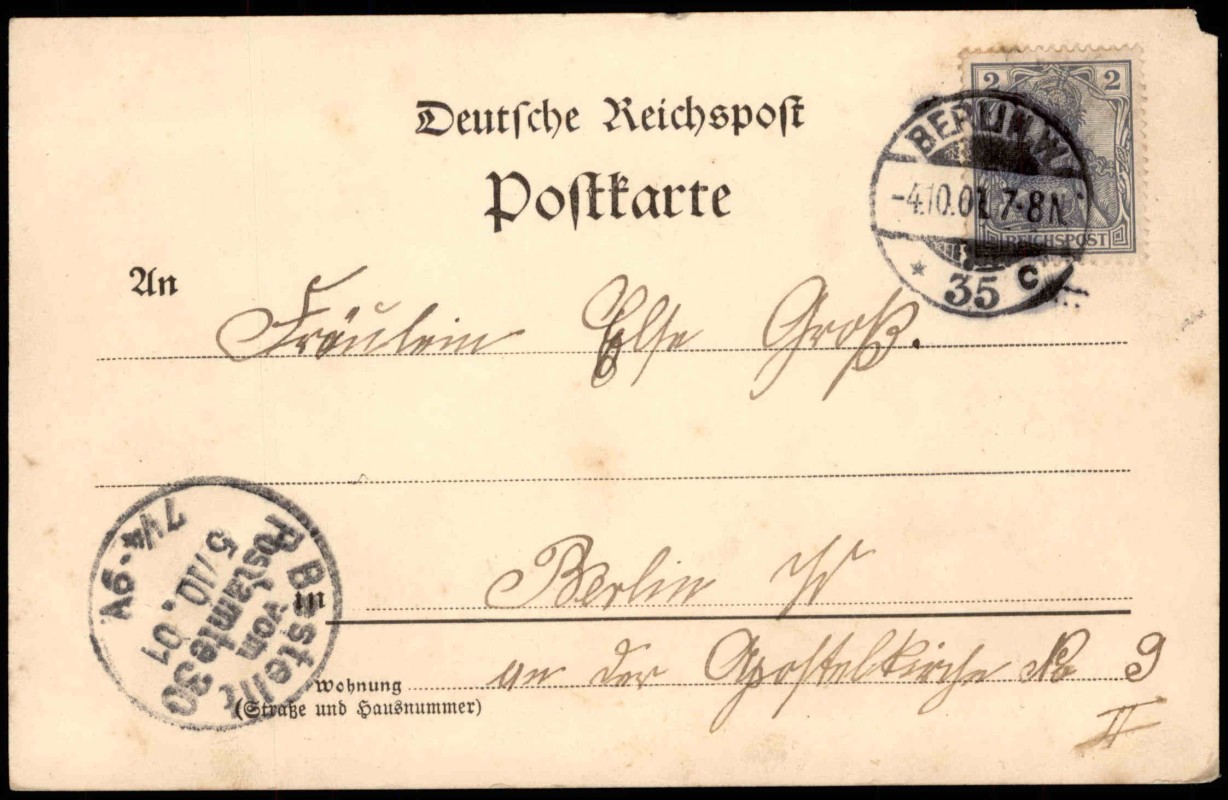 Deutsche Reichspost
Postkarte
2 2
REICHSPOST
BERLIN. W.
-4.10.01. 7-8N.
* 35 c
An
Fräulein Else Groß.
in Berlin W
Wohnung an der Apostelkirche No 9
(Straße und Hausnummer)
II
Bestellt
vom
Postamte 30
5/10. 01
7¼-9V